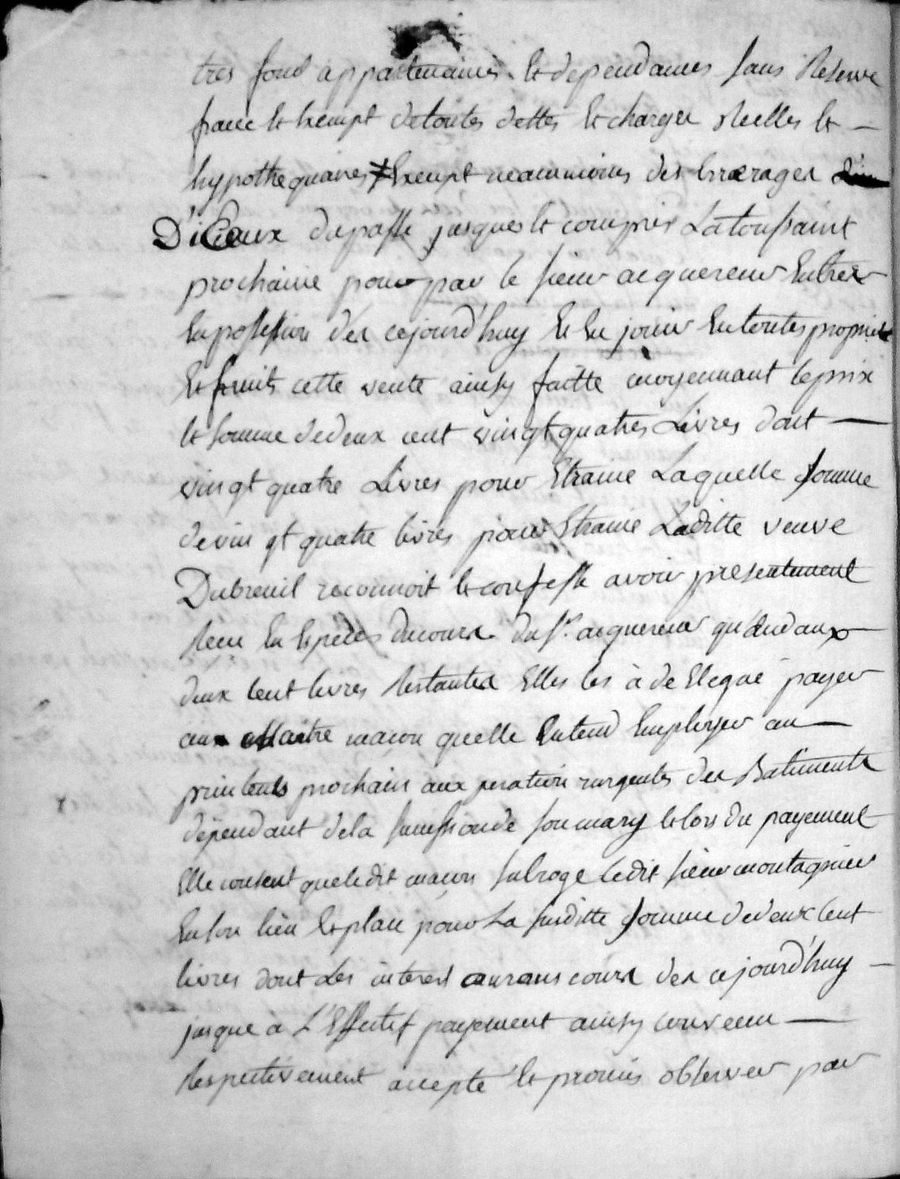 tres fond appartenances et dependances sans Reserve
franc et Exempt de toutes dettes et charges Reelles et
hypothequaires Exempt neanmoins des Arrerages
D'iceux du passé jusques et compris La toussaint
prochaine pour par le sieur acquereur Entrer
En possession des cejourd'huy et En jouir En toutes propriete
et fruits cette vente ainsy faitte moyennant le prix
et somme de deux cent vingt quatres Livres dont
vingt quatre Livres pour Etrame Laquelle somme
de vingt quatre livres pour Etrame Laditte veuve
Dubreuil reconnoit et confesse avoir presentement
Receu En Especes du cours du sr. acquereur quand aux
deux Cent livres Restantes Elles les à de Elegué payer
aux Maitre macon quelle Entend Employer au
printents prochain aux urgentes des Batiments
dépendant de la succession de son mary et lors du payement
Elle consent que ledit macon subroge ledit sieur montagnier
En son lieu et place pour La susditte somme de deux Cent
livres dont Les interest aurans cours des cejourd'huy
jusque a L'Effectif payement ainsy convenu
Respectivement accepté et promis observer par